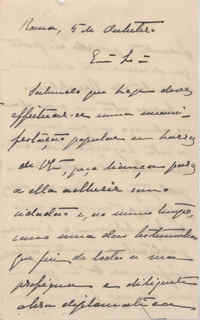 Roma, 5 de Outubro.
Sabendo que hoje deve
effectuar-se uma mani-
festação popular em honra
de V. Exª, peço licença para
a ella adherir como
cidadão e, ao mesmo tempo,
como uma das testemunhas
que fui de toda a sua
e diligente
obra diplomatica